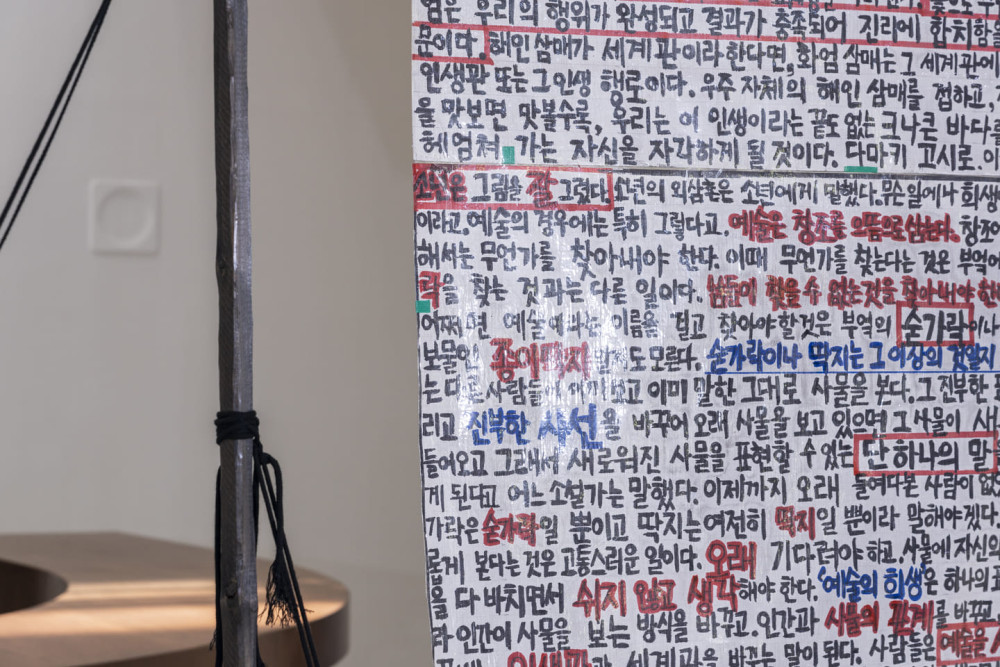 엄은 우리의 행위가 완성되고 결과가 충족되어 진리에 합치함을
문이다. 해인 삼매가 세계관이라 한다면, 화엄 삼매는 그 세계관에
인생관 또는 그 인생 행로이다. 우주 자체의 해인 삼매를 접하고,
을 맛보면 맛볼수록, 우리는 이 인생이라는 끝도 없는 크나큰 바다를
헤엄쳐 가는 자신을 자각하게 될 것이다. 다마키 고시로. 이
소년은 그림을 잘 그렸다. 소년의 외삼촌은 소년에게 말했다. 무슨 일에나 희생
이라고. 예술의 경우에는 특히 그렇다고. 예술은 창조를 으뜸으로 삼는다. 창조
해서는 무언가를 찾아내야 한다. 이때 무언가를 찾는다는 것은 부엌에
락을 찾는 것과는 다른 일이다. 남들이 찾을 수 없는 것을 찾아내야 한
어쩌면 예술에 이름을 걸고 찾아야 할 것은 부엌의 숟가락이나
보물인 종이딱지 도 모른다. 숟가락이나 딱지는 그 이상의 것일지
는 다른 사람들이 보고 이미 말한 그대로 사물을 본다. 그 진부한
리고 진부한 시선을 바꾸어 오래 사물을 보고 있으면 그 사물이 새
들어오고 그러면서 새로워진 사물을 표현할 수 있는 단 하나의 말을
게 된다고 어느 소설가는 말했다. 이제까지 오래 들여다본 사람이 없
가락은 숟가락일 뿐이고 딱지는 여전히 딱지일 뿐이라 말해야겠다.
롭게 본다는 것은 고통스러운 일이다. 오래 기다려야 하고 사물에 자신의
을 다 바치면서 쉬지 않고 생각해야 한다. '예술의 희생'은 하나의
라 인간이 사물을 보는 방식을 바꾸고. 인간과 사물의 관계를 바꾸고
세계관을 바꾸는 말이 된다. 사람들은 예술을